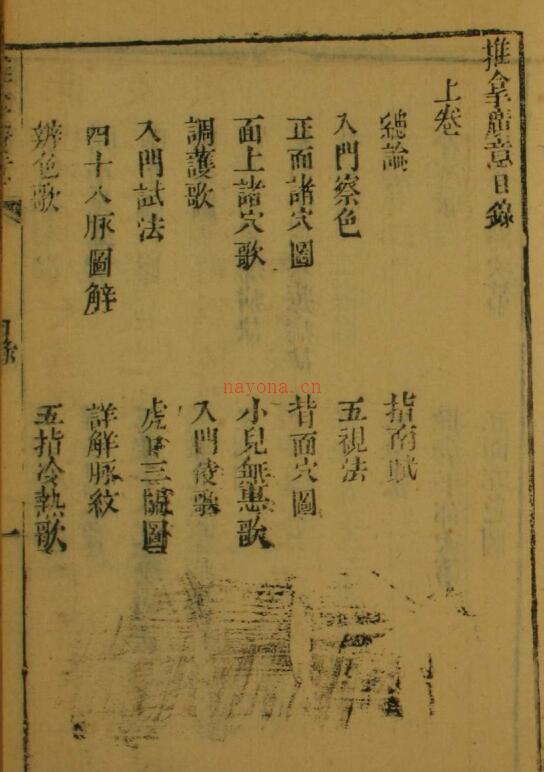 推拿廣意目錄
上卷
總論 指南賦
入門察色 五視法
正面諸穴圖 背面穴圖
面上諸穴歌 小兒無患歌
調護歌 入門候歌
入門試法 虎口三關圖
四十八脈圖解 詳解脈紋
辨色歌 五指冷熱歌
目錄 一
nayona.cn